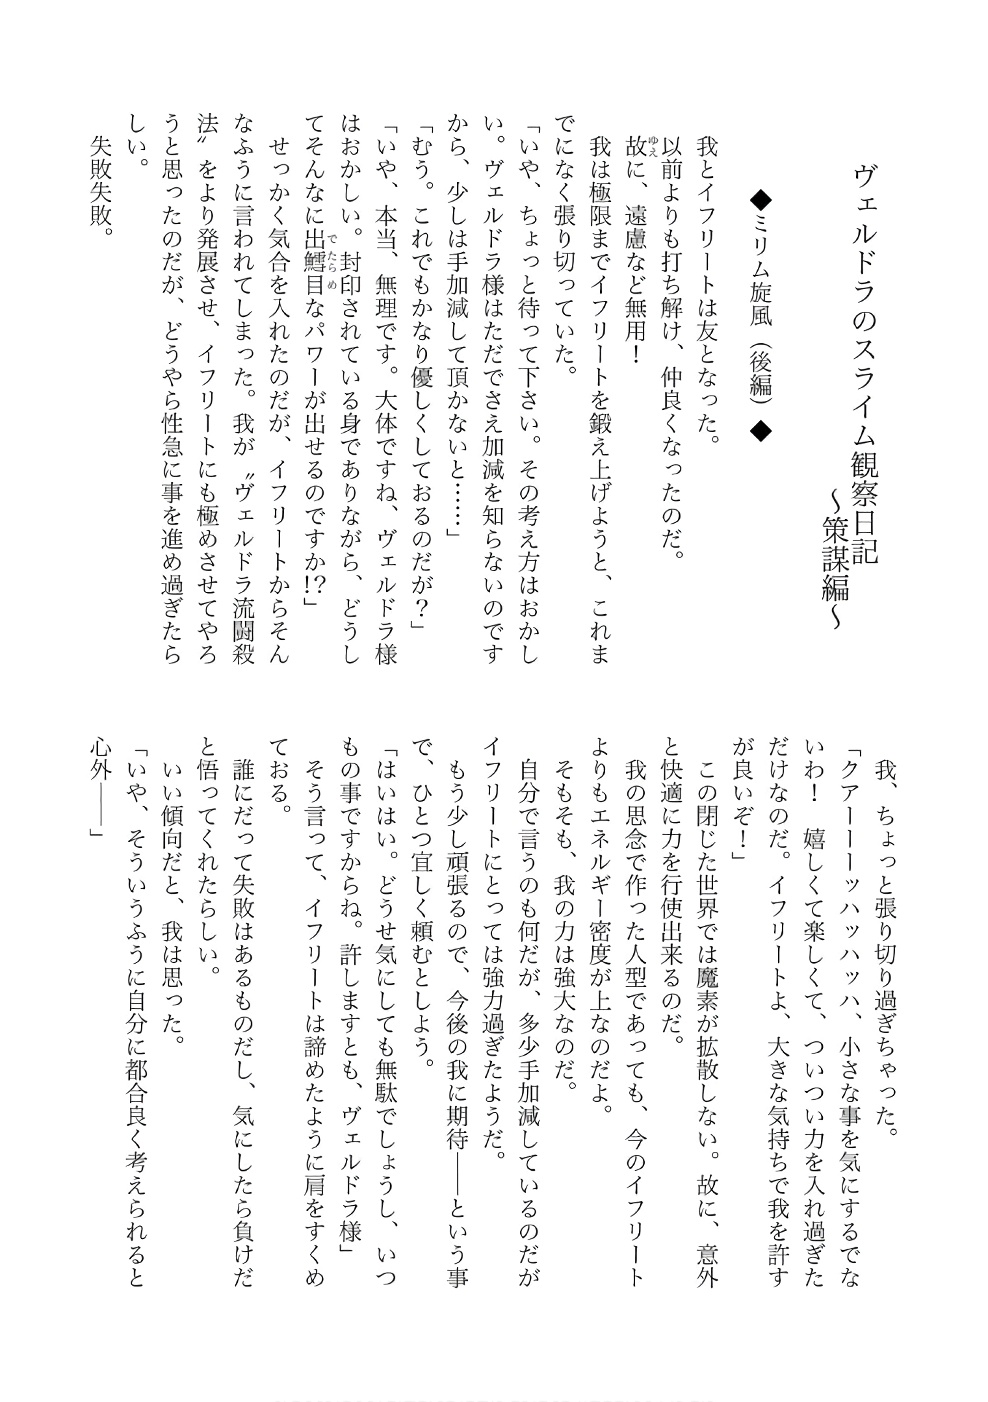 ヴェルドラのスライム観察日記
～策謀編～
◆ミリム旋風（後編）◆
　我とイフリートは友となった。
　以前よりも打ち解け、仲良くなったのだ。
　故に、遠慮など無用！
　我は極限までイフリートを鍛え上げようと、これま
でになく張り切っていた。
「いや、ちょっと待って下さい。その考え方はおかし
い。ヴェルドラ様はただでさえ加減を知らないのです
から、少しは手加減して頂かないと……」
「むう。これでもかなり優しくしておるのだが？」
「いや、本当、無理です。大体ですね、ヴェルドラ様
はおかしい。封印されている身でありながら、どうし
てそんなに出鱈目なパワーが出せるのですか!?」
　せっかく気合を入れたのだが、イフリートからそん
なふうに言われてしまった。我が〝ヴェルドラ流闘殺
法〟をより発展させ、イフリートにも極めさせてやろ
うと思ったのだが、どうやら性急に事を進め過ぎたら
しい。
　失敗失敗。
　我、ちょっと張り切り過ぎちゃった。
「クアーーーッハッハッハ、小さな事を気にするでな
いわ！　嬉しくて楽しくて、ついつい力を入れ過ぎた
だけなのだ。イフリートよ、大きな気持ちで我を許す
が良いぞ！」
　この閉じた世界では魔素が拡散しない。故に、意外
と快適に力を行使出来るのだ。
　我の思念で作った人型であっても、今のイフリート
よりもエネルギー密度が上なのだよ。
　そもそも、我の力は強大なのだ。
　自分で言うのも何だが、多少手加減しているのだが
イフリートにとっては強力過ぎたようだ。
　もう少し頑張るので、今後の我に期待――という事
で、ひとつ宜しく頼むとしよう。
「はいはい。どうせ気にしても無駄でしょうし、いつ
もの事ですからね。許しますとも、ヴェルドラ様」
　そう言って、イフリートは諦めたように肩をすくめ
ておる。
　誰にだって失敗はあるものだし、気にしたら負けだ
と悟ってくれたらしい。
　いい傾向だと、我は思った。
「いや、そういうふうに自分に都合良く考えられると
心外――」